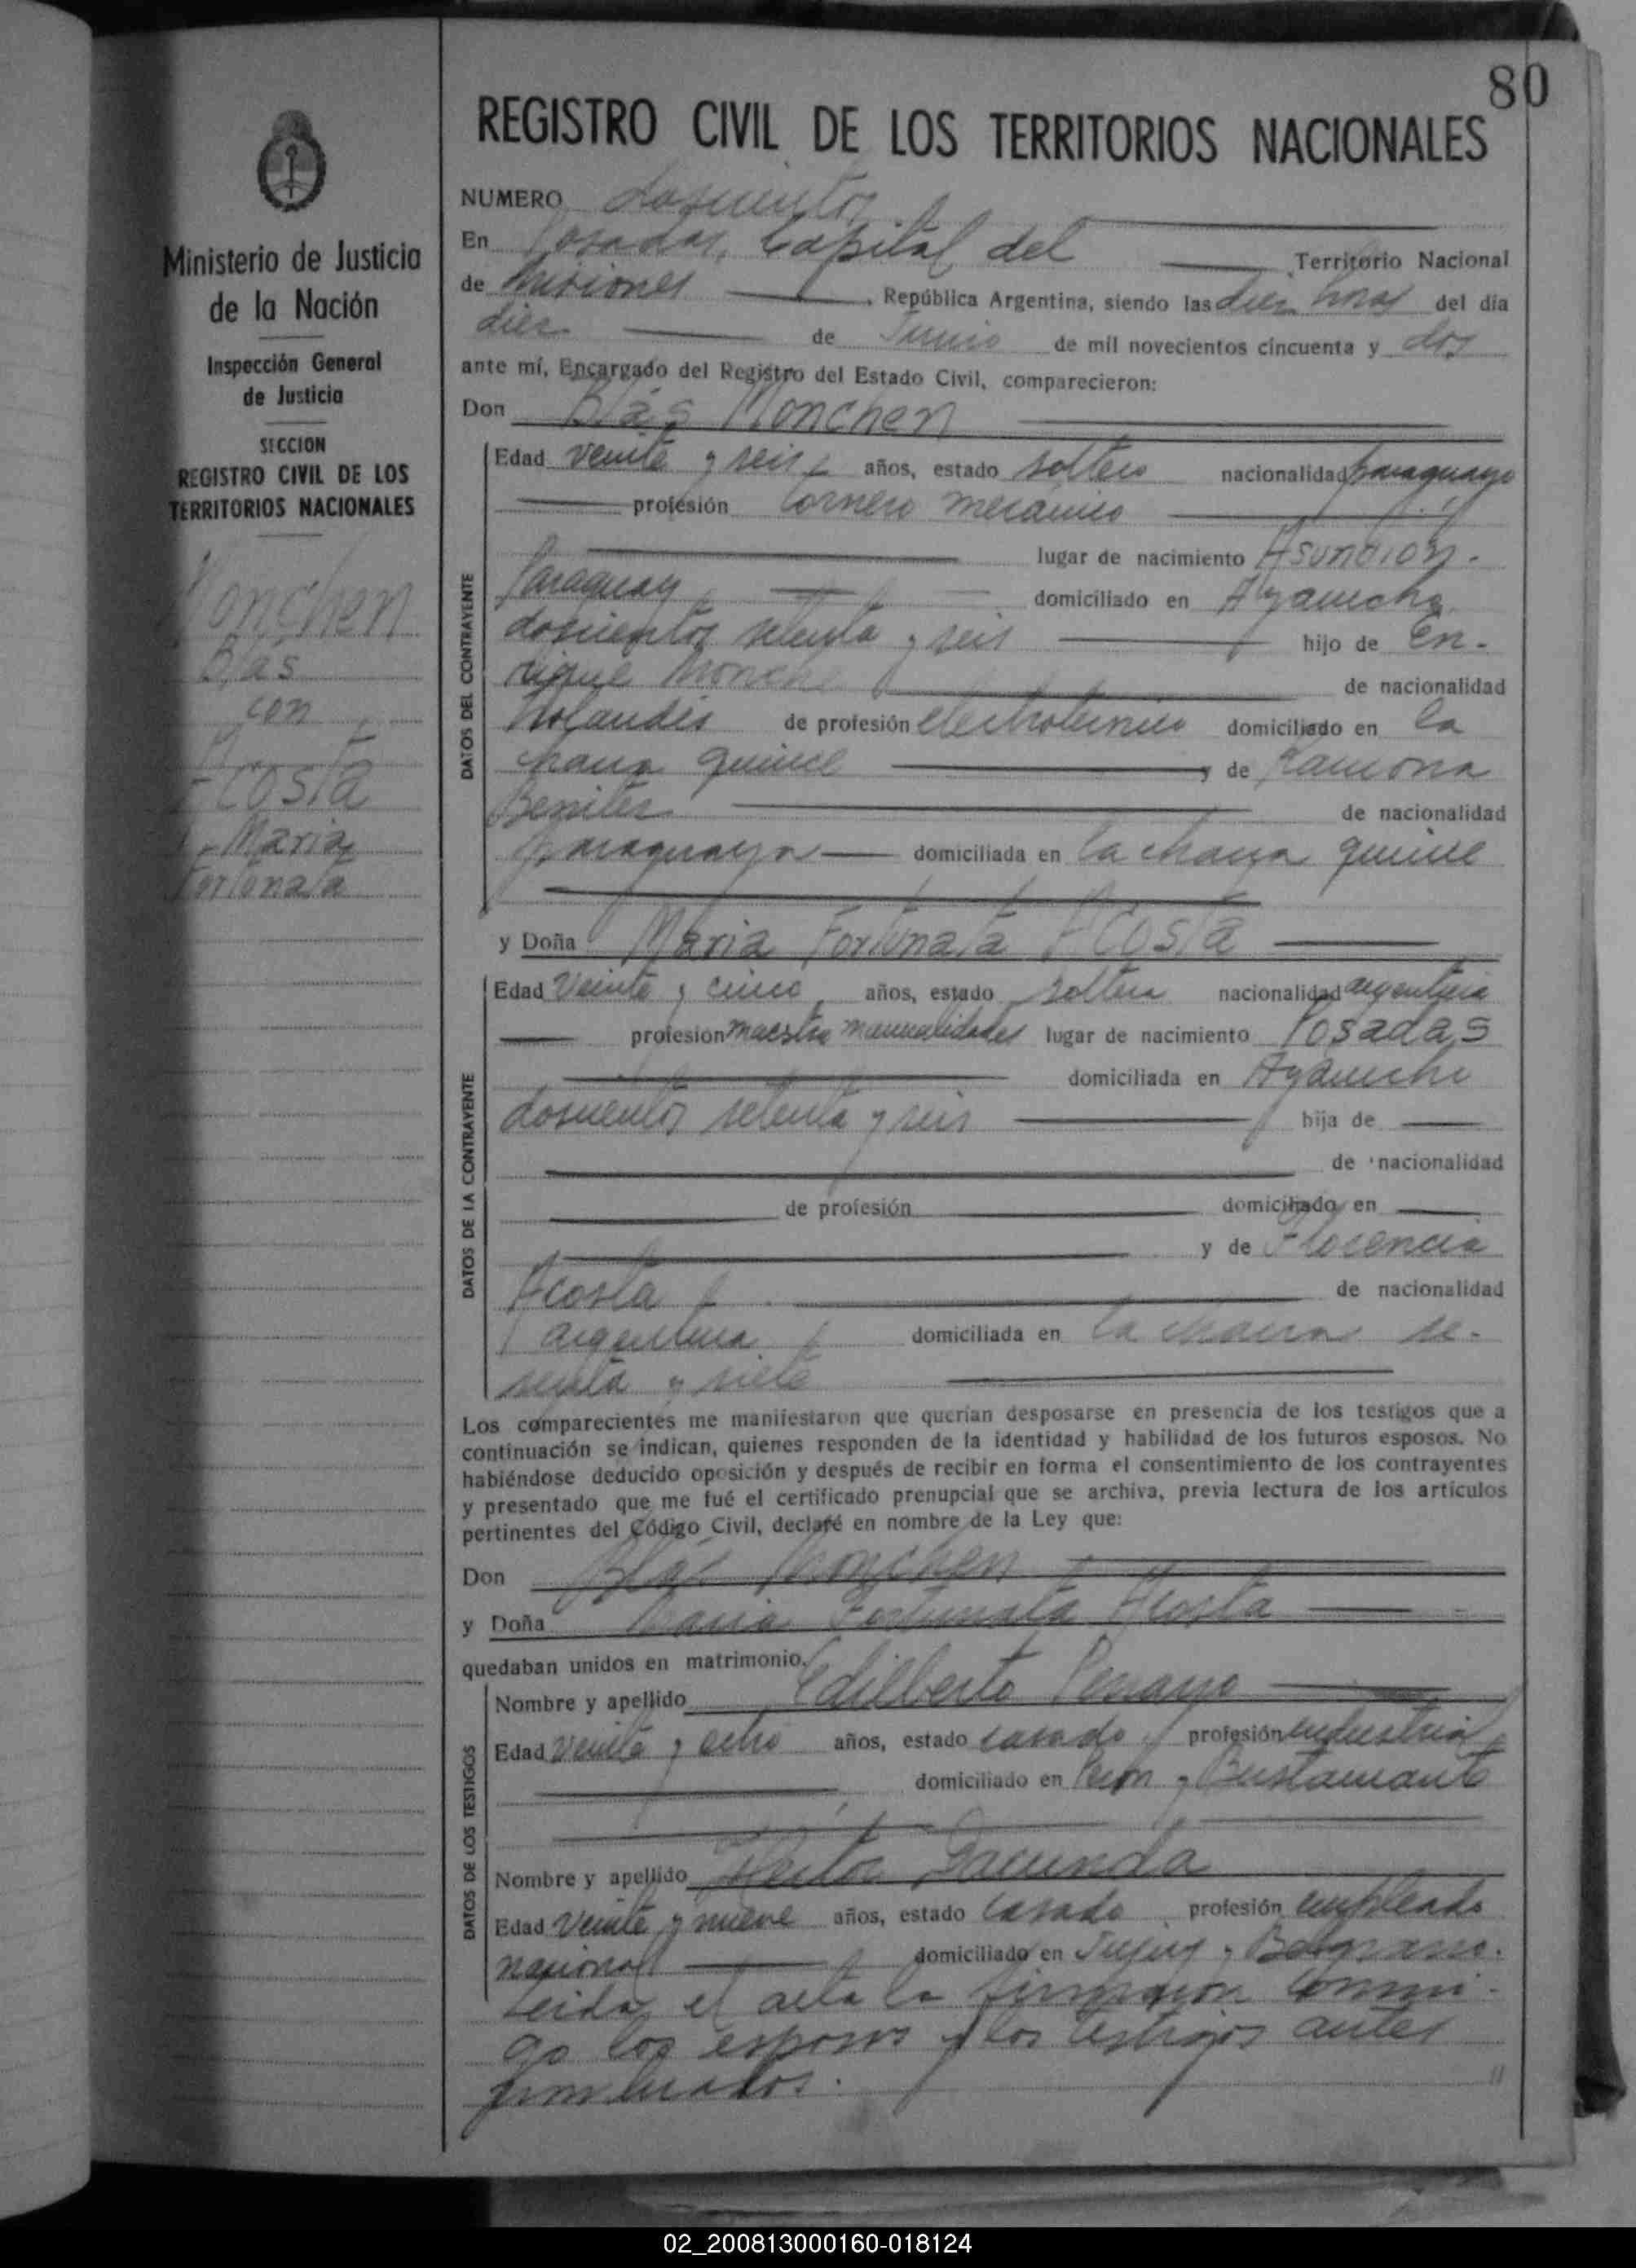 80
REGISTRO CIVIL DE LOS TERRITORIOS NACIONALES
Ministerio de Justicia
de la Nación
Inspección General
de Justicia
SECCION
REGISTRO CIVIL DE LOS
TERRITORIOS NACIONALES
Monchen
Blás
con
Acosta
Maria
Fortunata
NUMERO doscientos
En Posadas, Capital del Territorio Nacional
de Misiones, República Argentina, siendo las diez horas del día
diez de Junio de mil novecientos cincuenta y dos
ante mí, Encargado del Registro del Estado Civil, comparecieron:
Don Blás Monchen
DATOS DEL CONTRAYENTE
Edad veinte y seis años, estado soltero nacionalidad paraguayo
profesión tornero mecánico
lugar de nacimiento Asunción.
Paraguay domiciliado en Ayacucho
doscientos setenta y seis hijo de En-
rique Monche de nacionalidad
holandés de profesión electrotecnico domiciliado en la
chacra quince y de Ramona
Benitez de nacionalidad
paraguaya domiciliada en la chacra quince
y Doña Maria Fortunata Acosta
DATOS DE LA CONTRAYENTE
Edad veinte y cinco años, estado soltera nacionalidad argentina
profesion maestra manualidades lugar de nacimiento Posadas
domiciliada en Ayacucho
doscientos setenta y seis hija de
de nacionalidad
de profesión domiciliado en
y de Florencia
Acosta de nacionalidad
argentina domiciliada en la chacra se-
senta y siete
Los comparecientes me manifestaron que querían desposarse en presencia de los testigos que a
continuación se indican, quienes responden de la identidad y habilidad de los futuros esposos. No
habiéndose deducido oposición y después de recibir en forma el consentimiento de los contrayentes
y presentado que me fué el certificado prenupcial que se archiva, previa lectura de los artículos
pertinentes del Código Civil, declaré en nombre de la Ley que:
Don Blás Monchen
y Doña Maria Fortunata Acosta
quedaban unidos en matrimonio.
DATOS DE LOS TESTIGOS
Nombre y apellido Edilberto
Edad veinte y ocho años, estado casado profesión industrial
domiciliado en Perón y Bustamante
Nombre y apellido Hector
Edad veinte y nueve años, estado casado profesión empleado
nacional domiciliado en Jujuy y Belgrano.
Leida el acta la firmaron conmi-
go los esposos y los testigos antes
nombrados.
02_200813000160-018124